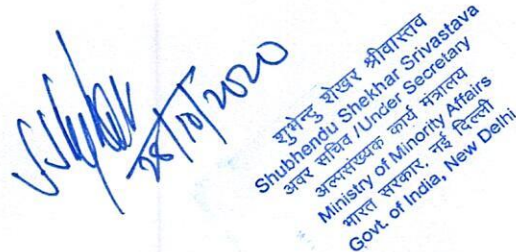 28/10/2020
शुभेन्दु शेखर श्रीवास्तव
Shubhendu Shekhar Srivastava
अवर सचिव /Under Secretary
अल्पसंख्यक कार्य मंत्रालय
Ministry of Minority Affairs
भारत सरकार, नई दिल्ली
Govt. of India, New Delhi